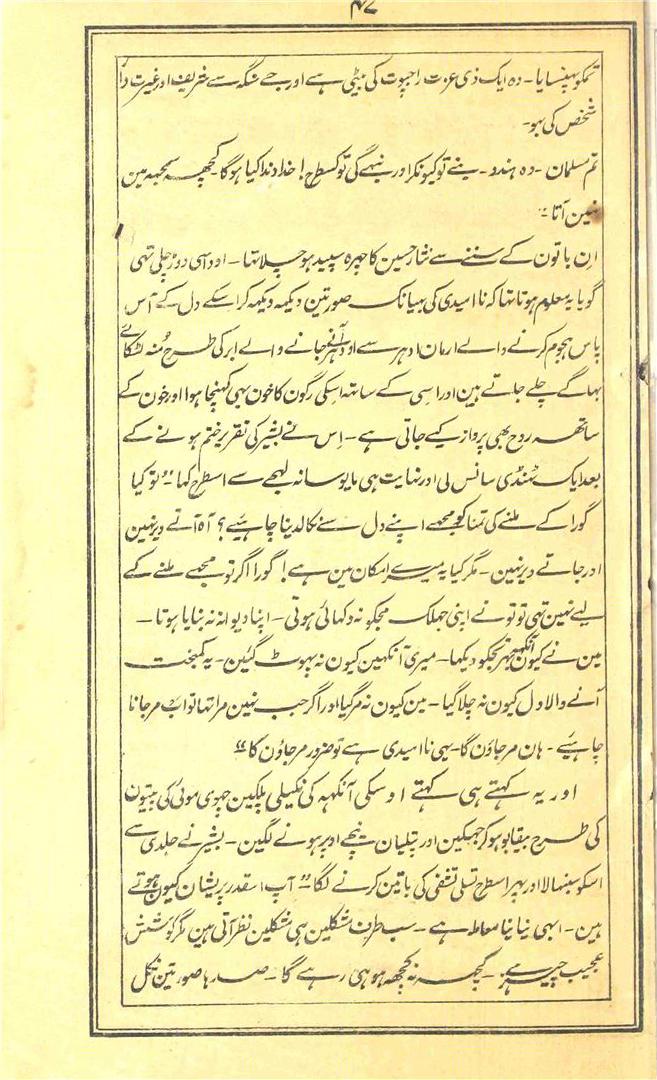 ۴۷
تمکو پہنسایا۔ وہ ایک ذی عزت راجپوت کی بیٹی ہے اور جے سنگہ سے شریف اور غیرت دار
شخص کی بہو۔
تم مسلمان۔ وہ ہندو۔ بنے تو کیونکر اور نبہے گی تو کسطرح! خداوندا کیا ہوگا۔ کچہہ سمجہہ مین
نہین آتا۔
ان باتون کے سننے سے نثار حسین کا چہرہ سپید ہو چلا تہا۔ اوداسی دوڑ چلی تہی
گویا یہ معلوم ہوتا تہا کہ ناامیدی کی بہیانک صورتین دیکہہ دیکہہ کر اسکے دل کے آس
پاس ہجوم کرنے والے ارمان ادہر سے اودہر آنے جانے والے ابر کی طرح مُنہ لٹکائے
بہاگے چلے جاتے ہین اور اسی کے ساتہہ اسکی رگون کا خون بہی کہنچا ہوا اور خون کے
ساتہہ روح بھی پرواز کیے جاتی ہے۔ اس نے بشیر کی تقریر ختم ہونے کے
بعد ایک ٹہنڈی سانس لی اور نہایت ہی مایوسانہ لہجے سے اسطرح کہا۔ ”تو کیا
گورا کے ملنے کی تمنا کو مجہے اپنے دل سے نکالدینا چاہیے؟ آہ آتے دیر نہین
اور جاتے دیر نہین۔ مگر کیا یہ میرے امکان مین ہے! گورا اگر تو مجہے ملنے کے
لیے نہین تہی تو تو نے اپنی جہلک مجکو نہ دکہائی ہوتی۔ اپنا دیوانہ نہ بنایا ہوتا۔
مین نے کیون آنکہہ بہر تجکو دیکہا۔ میری آنکہین کیون نہ پہوٹ گئین۔ یہ کمبخت
آنے والا دل کیون نہ چلا گیا۔ مین کیون نہ مر گیا اور اگر جب نہین مرا تہا تو اب مر جانا
چاہیے۔ ہان مر جاؤن گا۔ یہی ناامیدی ہے تو ضرور مر جاؤن گا“
اور یہ کہتے ہی کہتے اوسکی آنکہہ کی نکیلی پلکین چہوی موئی کی پتیون
کی طرح بیقابو ہو کر جہپکین اور پتلیان نیچے اوپر ہونے لگین۔ بشیر نے جلدی سے
اسکو سنبہالا اور پہر اسطرح تسلی تشفی کی باتین کرنے لگا۔ ”آپ اسقدر پریشان کیون ہوتے
ہین۔ ابہی نیا نیا معاملہ ہے۔ سب طرف مشکلین ہی مشکلین نظر آتی ہین مگر کوشش
عجیب چیز ہے۔ کچہہ نہ کچہہ ہو ہی رہے گا۔ صدہا صورتین نکل